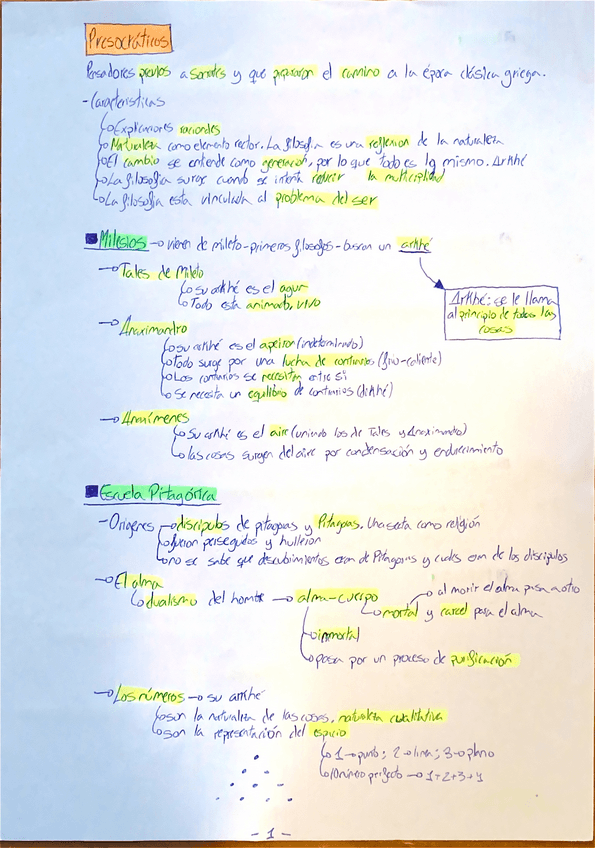 Presocráticos
Pensadores previos a Socrates y que prepararon el camino a la época clásica griega.
-Características
Explicaciones racionales
Naturaleza como elemento rector. La filosofia es una reflexion de la naturaleza
El cambio se entiende como generación, por lo que todo es lo mismo. Arkhé
La filosofia surge cuando se intenta reducir la multiplicidad
La filosofia esta vinculada al problema del ser
Milesios → vienen de mileto-primeros filosofos-buscan un arkhé
→ Tales de Mileto
su arkhé es el agua
Todo esta animado, vivo
Arkhé: se le llama
al principio de todas las
cosas
→ Anaximandro
su arkhé es el apeiron (indeterminado)
Todo surge por una lucha de contrarios (frio-caliente)
Los contrarios se necesitan entre si
Se necesita un equilibrio de contrarios (dikhé)
→ Anaxímenes
Su arkhé es el aire (uniendo los de Tales y Anaximandro)
las cosas surgen del aire por condensación y endurecimiento
Escuela Pitagórica
-Origenes → discipulos de pitagoras y Pitagoras. Una secta como religión
fueron perseguidos y hulleron
no se sabe que descubrimientos eran de Pitagoras y cuales eran de los discipulos
→ El alma
dualismo del hombre → alma-cuerpo
al morir el alma pasa a otro
mortal y carcel para el alma
inmortal
pasa por un proceso de purificación
→ Los números → su arkhé
son la naturaleza de las cosas, naturaleza cualitativa
son la representación del espacio
1→punto; 2→linea; 3→plano
10 número perfecto → 1+2+3+4
-1-